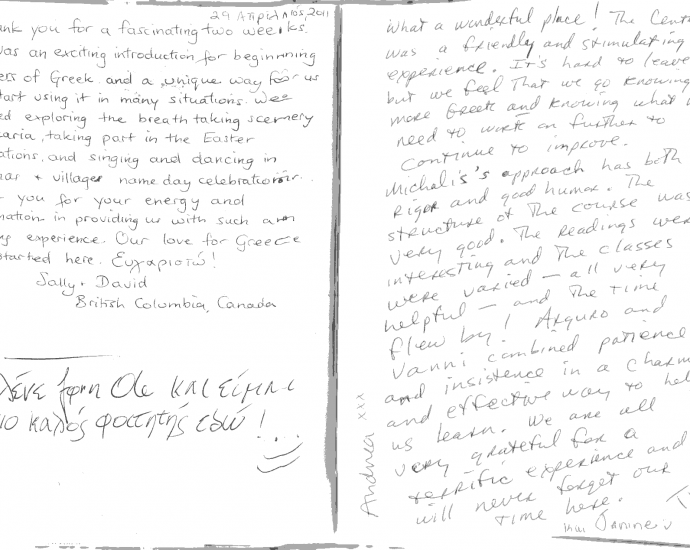 29 Απριλιος, 2011
ank you for a fascinating two weeks.
was an exciting introduction for beginning
ess of Greek and a unique way for us
tart using it in many situations. We
ed exploring the breath taking scenery
caria, taking part in the Easter
ations, and singing and dancing in
nar + villages name day celebrations.
you for your energy and
nation in providing us with such an
ng experience. Our love for Greece
started here. Ευχαριστώ!
Sally + David
British Columbia, Canada
λένε και είμαι
ιο καλός φοιτητής εδώ!
what a wonderful place! The Cent
was a friendly and stimulating
experience. It's hard to leave
but we feel that we go knowing
more Greek and knowing what
need to work on further to
continue to improve.
Michalis's approach has both
rigor and good humor. The
structure of the course was
very good. The readings wer
interesting and the classes
were varied — all very
helpful — and the time
flew by! Arguro and
Vanni combined patience
and insistence in a charm
and effective way to hel
us learn. We are all
very grateful for a
terrific experience and
will never forget our
time here.
Andrea xxx